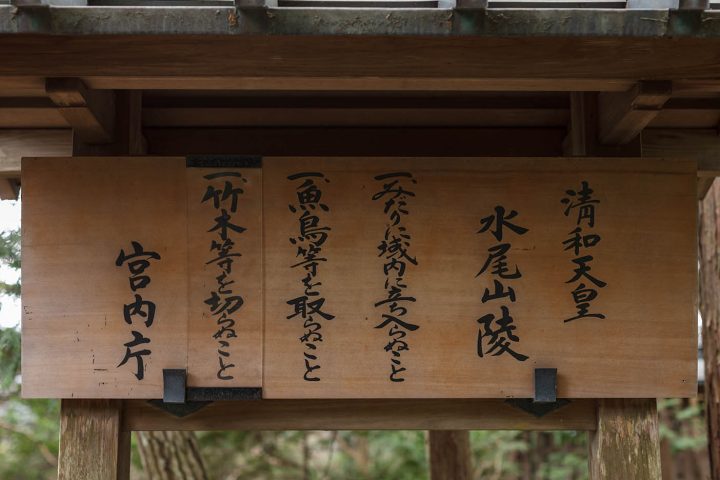 清和天皇
水尾山陵
一、みだりに域内に立ち入らぬこと
一、魚鳥等を取らぬこと
一、竹木等を切らぬこと
宮内庁